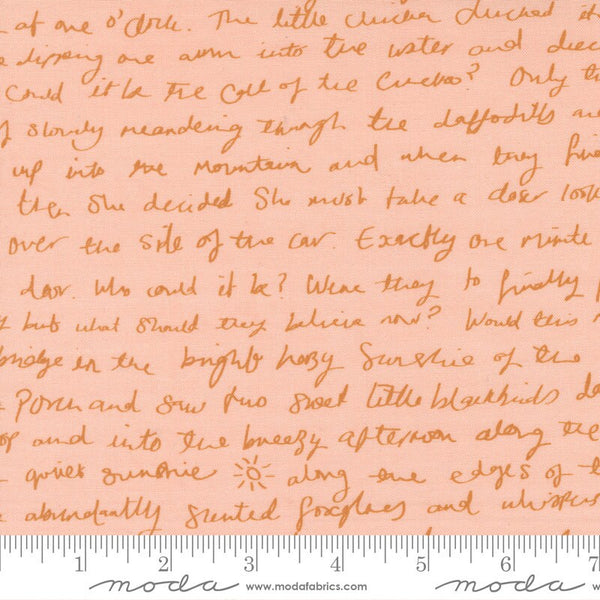 at one o'clock. The little chicken clucked
dipping one arm into the water and
Could it be the Call of the Cuckoo? Only
slowly meandering through the daffodills
up into the mountain and when they
then She decided She must take a closer look
over the side of the car. Exactly one minute
door. Who could it be? Were they to finally
but what should they believe now? Would this
bridge in the brightly hazy Sunshine of the
Porch and saw two sweet little blackbirds
and into the breezy afternoon along the
quiet sunshine along the edges of
abundantly scented foxgloves and whispers
1 2 3 4 5 6 7
moda www.modafabrics.com moda www.modafabrics.com